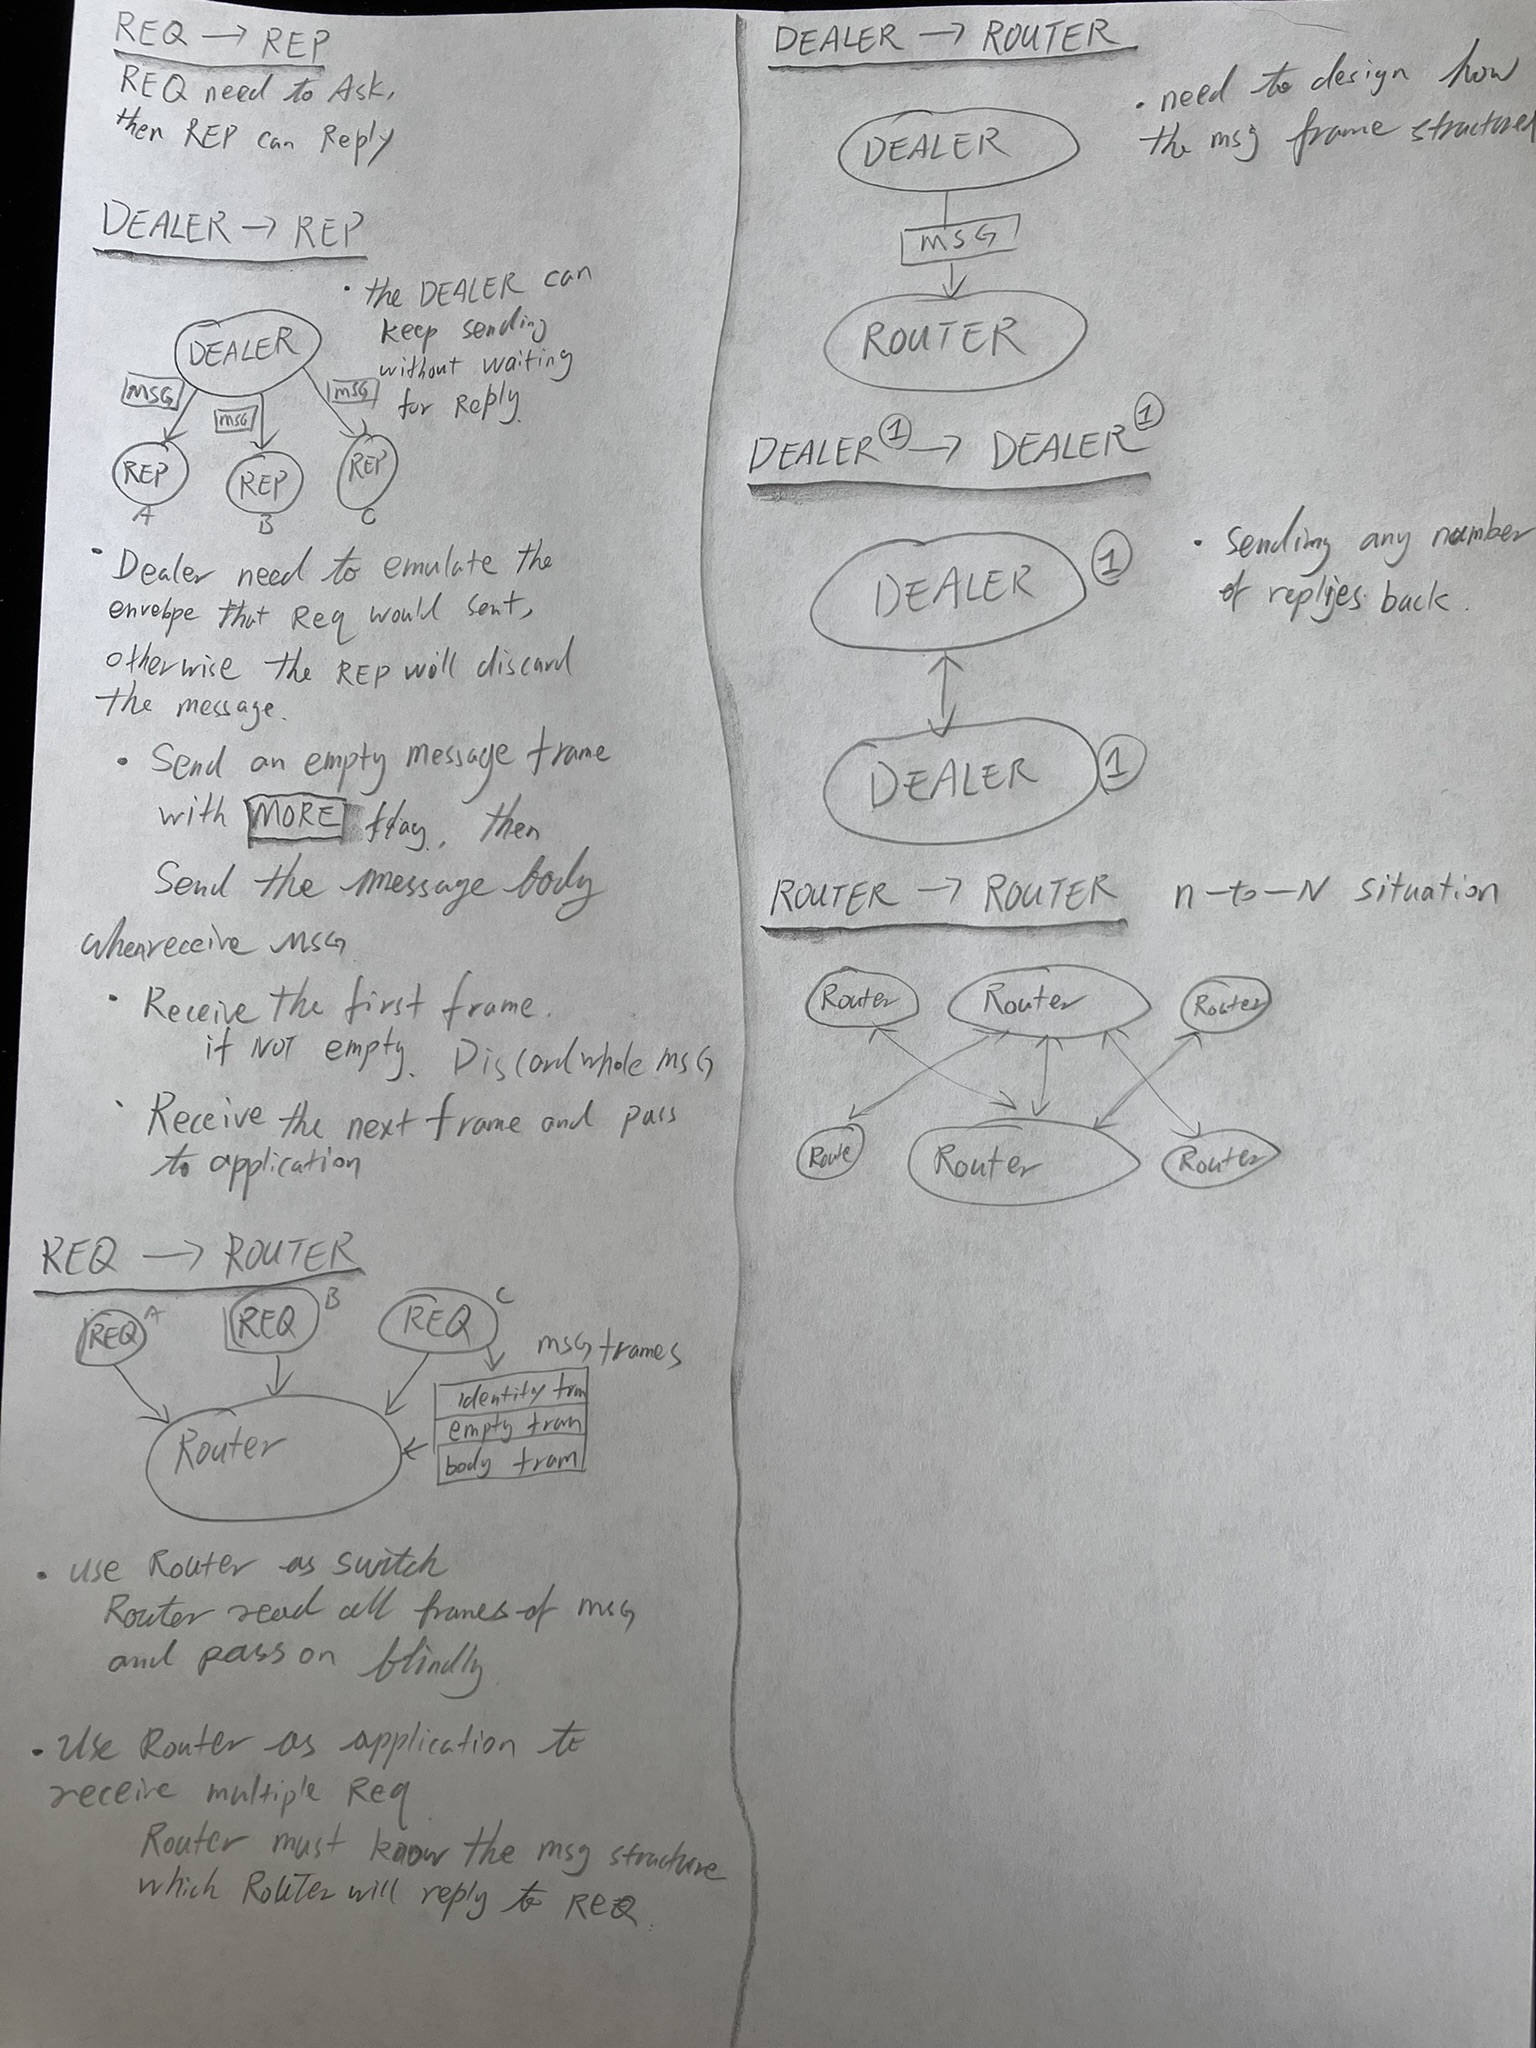 REQ → REP
REQ need to Ask,
then REP can Reply
DEALER → REP
• the DEALER can
keep sending
without waiting
for Reply.
DEALER
MSG
MSG
MSG
REP
REP
REP
A
B
C
• Dealer need to emulate the
envelope that Req would sent,
otherwise the REP will discard
the message.
• Send an empty message frame
with MORE flag, then
Send the message body
when receive MSG
• Receive the first frame.
if NOT empty. Discard whole msG
• Receive the next frame and pass
to application
REQ → ROUTER
REQ A
REQ B
REQ C
msG frames
identity fram
empty fram
body fram
Router
• Use Router as switch
Router read all frames of msG
and pass on blindly
• Use Router as application to
receive multiple Req
Router must know the msg structure
which RoUTer will reply to REQ.
DEALER → ROUTER
• need to design how
the msg frame structured
DEALER
MSG
ROUTER
DEALER ① → DEALER ①
• Sending any number
of replies back.
DEALER ①
DEALER ①
ROUTER → ROUTER n-to-N situation
Router
Router
Router
Route
Router
Router